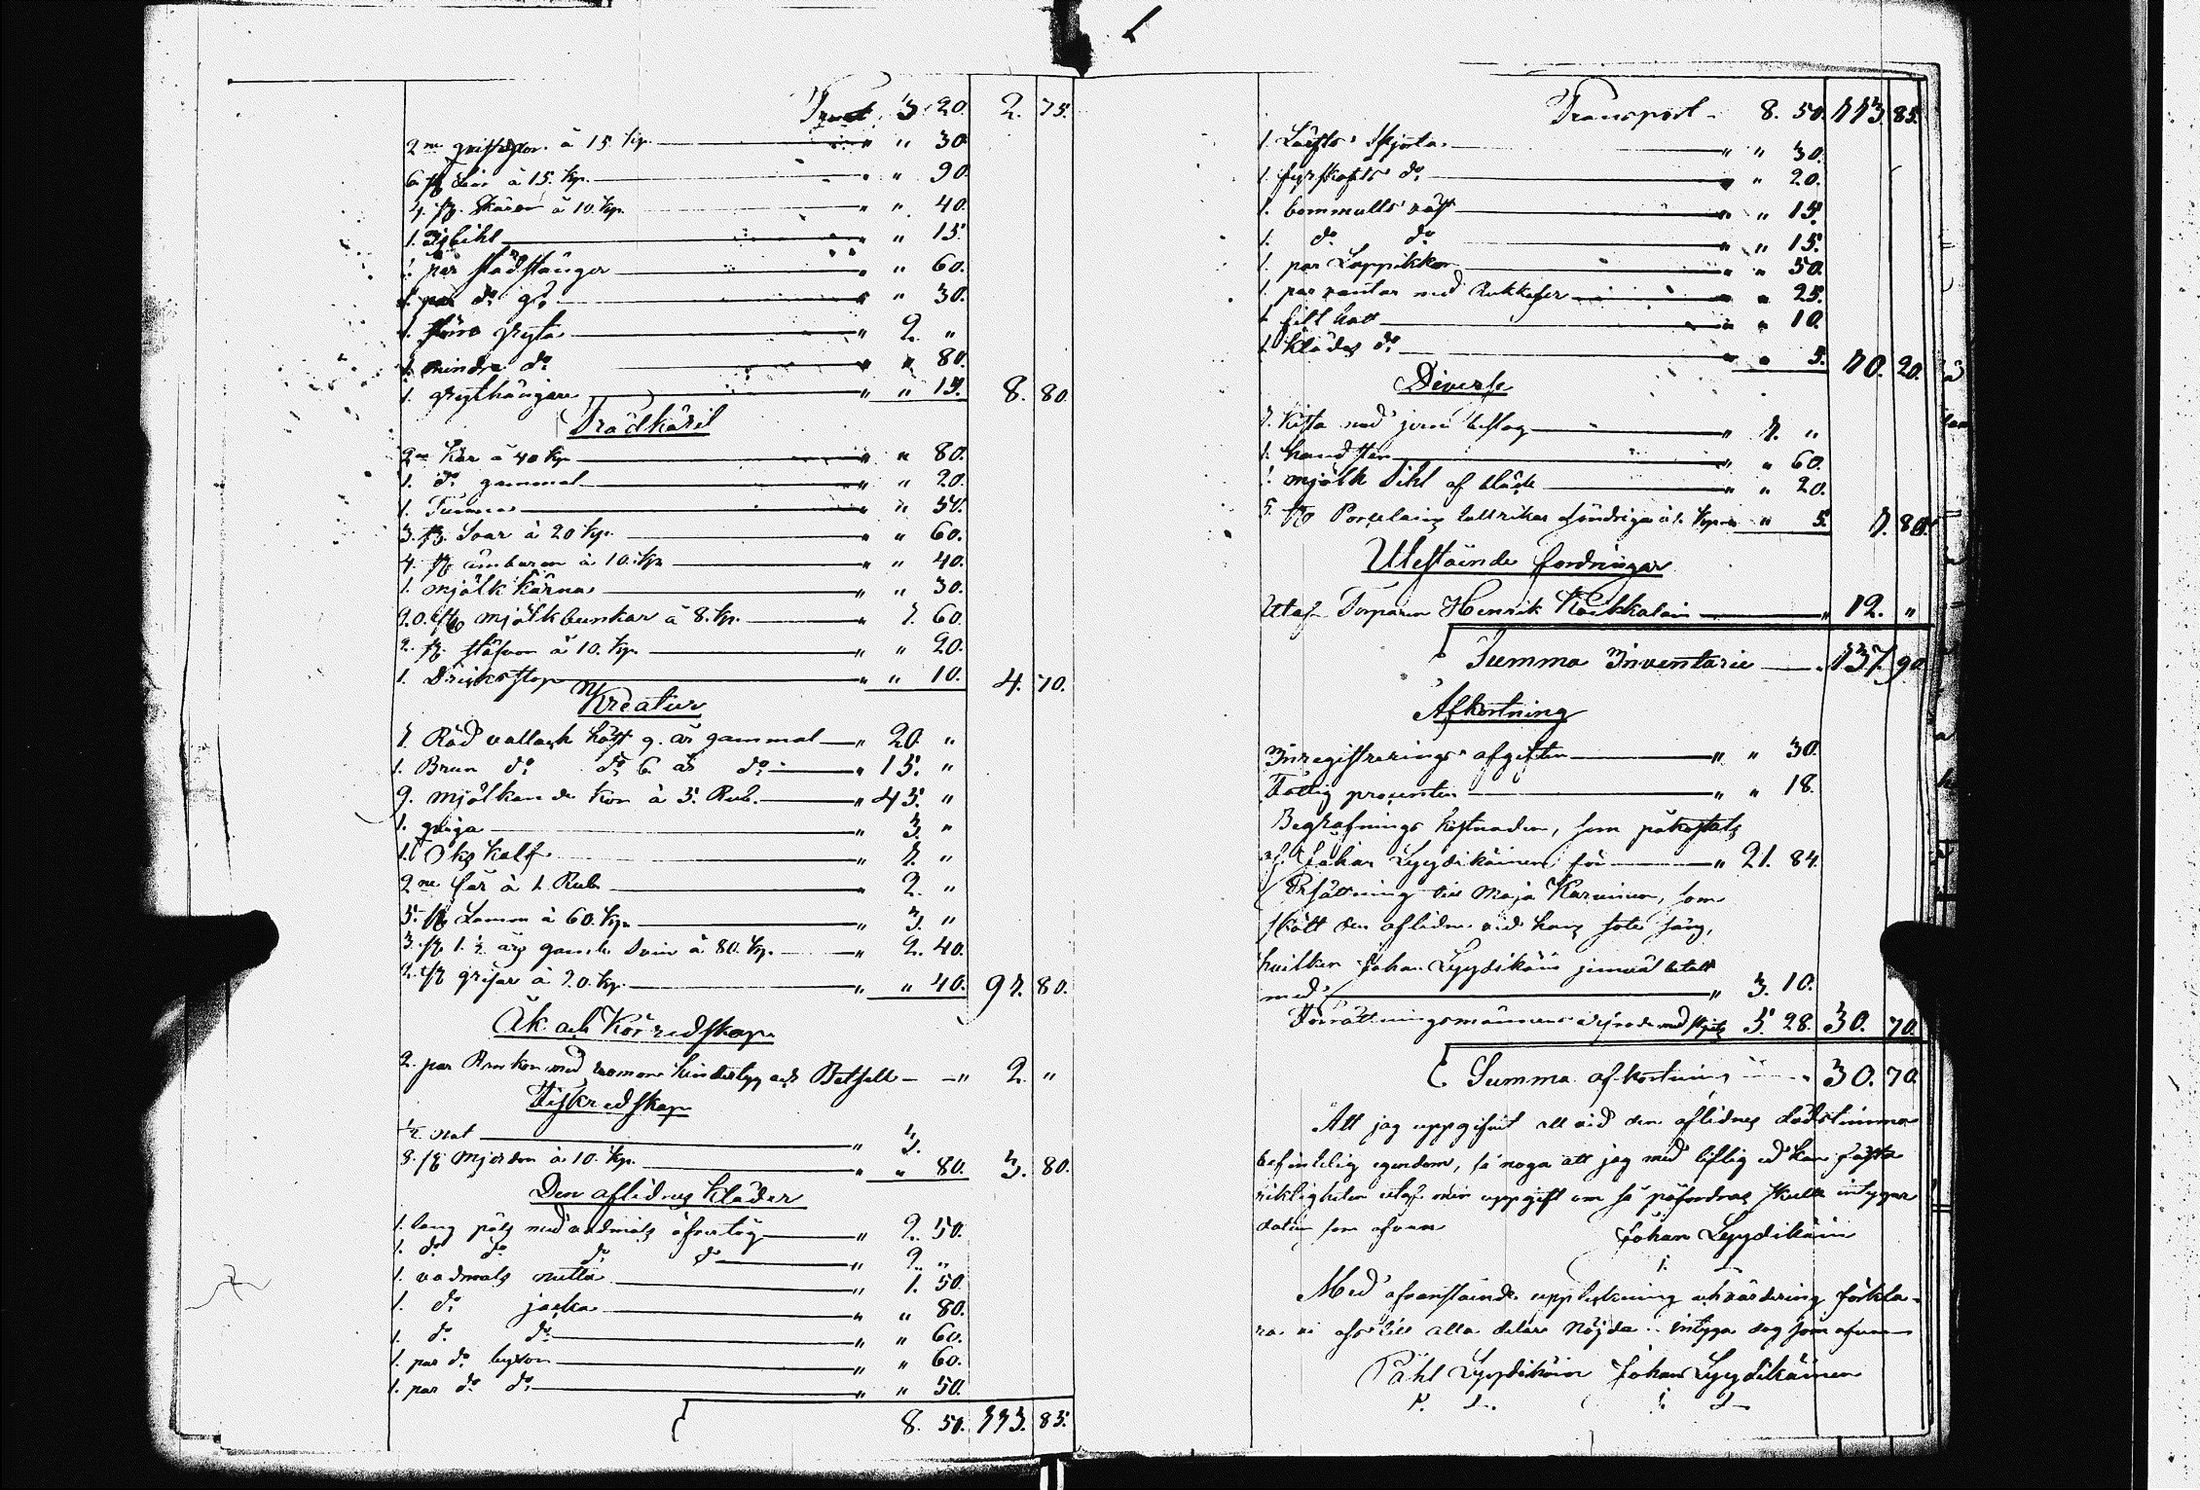 Trsport 3. 20. 2. 75.
2ne à 15 kp. " " 30.
6 st. Liar à 15. kp. " " 90.
4. st. Skäror à 10. kp. " " 40.
1. Isbihl " " 15.
1. par stådstänger " " 60.
1. par do go " " 30.
1. större gryta " 2. "
1. mindre do " " 80.
1. grythängare " " 15. 8. 80.
Trädkäril
2ne Kar à 40 kp " " 80.
1. do gammal " " 20.
1. Tunna " " 50.
3. st. Soar à 20 kp. " " 60.
4. st. ämbaren à 10. kp " " 40.
1. mjölk kärna " " 30.
20. st. mjölkbunkar à 8. kp. " 1. 60.
2. st. stäfvor à 10. kp. " " 20.
1. Dricksstop " " 10. 4. 70.
Kreatur
1. Röd vallack häst 9. år gammal " 20. "
1. Brun do do 6 år do " 15. "
9. mjölkande kor à 5. Rub. " 45. "
1. qviga " 3. "
1. Oks kalf " 1. "
2ne får à 1. Rub. " 2. "
5. st. Lamm à 60. kp. " 3. "
3. st. 1. 1/2 års gamla Svin à 80. kp. " 2. 40.
2. st. grisar à 20. kp. " " 40. 91. 80.
Åk och Körredskap
2. par med och Betsell " 2. "
Fiskredskap
1/2 not " 3.
8. st. mjerdon à 10. kp. " " 80. 3. 80.
Den aflidnes kläder
1. lång päls med vadmals öfvertyg " 2. 50.
1. do do do do " 2. "
1. vadmals " 1. 50.
1. do jacka " " 80.
1. do do " " 60.
1. par do byxor " " 60.
1. par do do " " 50.
8. 50. 113. 85.
Transport 8. 50. 113. 85.
1. Lärfts Skjorta " " 30.
1. fyrskafts do " " 20.
1. bommulls väst " " 15.
1. do do " " 15.
1. par Lappikkor " " 50.
1. par vantar med Rukkaser " " 25.
1. filt hatt " " 10.
1. klädes do " " 5. 10. 20.
Diverse
1. Kista med jern beslag " 1. "
1. handsten " " 60.
1. mjölk Sihl af bläck " " 20.
5. st. Porslains tallrikar à 1. kp. " " 5. 1. 85.
Utestående fordringar
Utaf Torparen Henrik " 12. "
Summa Inventarie " 137. 90.
Afkortning
Inregistrerings afgiften " " 30.
Fattig procenten " " 18.
Begrafnings kostnaden, som påkostats
af Johan Lyydikäinen för " 21. 84.
Ersättning till Maja Karvinen, som
skött den aflidne vid hans sotesäng,
hvilken Johan Lyydikäin jemväl betalt
med " 3. 10.
Förrättningsmännens med skjuts 5. 28. 30. 70.
Summa afkortning " 30. 70.
Att jag uppgifvit all vid den aflidnes dödstimma
befintelig egendom, så noga att jag med liflig ed kan fästa
riktigheten utaf min uppgift om så påfordras skulle intygar
datum som ofvan Johan Lyydikäin
Med ofvanstående uppteckning och värdering förkla-
ra vi oss till alla delar nöjda intyga dag som ofvan
Påhl Lyydikäin Johan Lyydikäinen
P. L. J. L